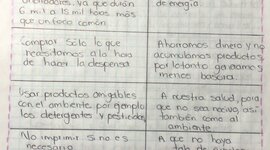 ahorradores, ya que duran
6 mil a 15 mil horas más
que un foco común.
de energía.
Comprar sólo lo que
necesitamos a la hora
de hacer la despensa
Ahorramos dinero y no
acumulamos productos,
por lo tanto generamos
menos basura.
Usar productos amigables
con el ambiente por ejemplo
los detergentes y pesticidas
A nuestra salud, para
que no sea nocivo, así
también como al
ambiente.
No imprimir si no es
necesario
A que no haya